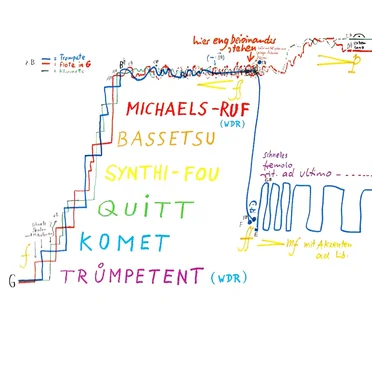 hier eng beieinander
stehen
z.B.
= Trompete
= Flöte in G
= Klarinette
ff
p
MICHAELS-RUF
(WDR)
BASSETSU
SYNTHI-FOU
QUITT
KOMET
TRŮMPETENT (WDR)
schnelles
tremolo
rit. ad ultimo
f
G
ff
mf mit Akzenten
ad lib.